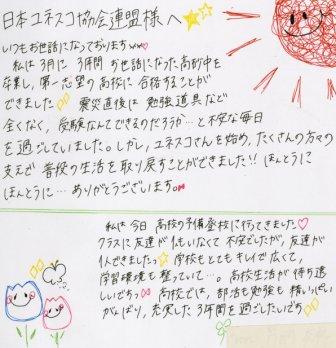 日本ユネスコ協会連盟様へ
いつもお世話になっておりますww♡
私は3月に3年間お世話になった高砂中を
卒業し、第一志望の高校に合格することが
できました 震災直後は勉強道具など
全くなく、受験なんてできるのだろうか…と不安な毎日
を過ごしていました。しかし、ユネスコさんを始め、たくさんの方々の
支えで普段の生活を取り戻すことができました!!ほんとうに
ほんとうに…ありがとうございます。
私は今日高校の予備登校に行ってきました♡
クラスに友達が1人もいなくて不安でしたが、友達が
1人できましたっ 学校もとてもキレイで広くて、
学習環境も整っていて…。高校生活が待ち遠
しいですっ 高校では、部活も勉強も精いっぱい
がんばり、充実した3年間を過ごしたいです